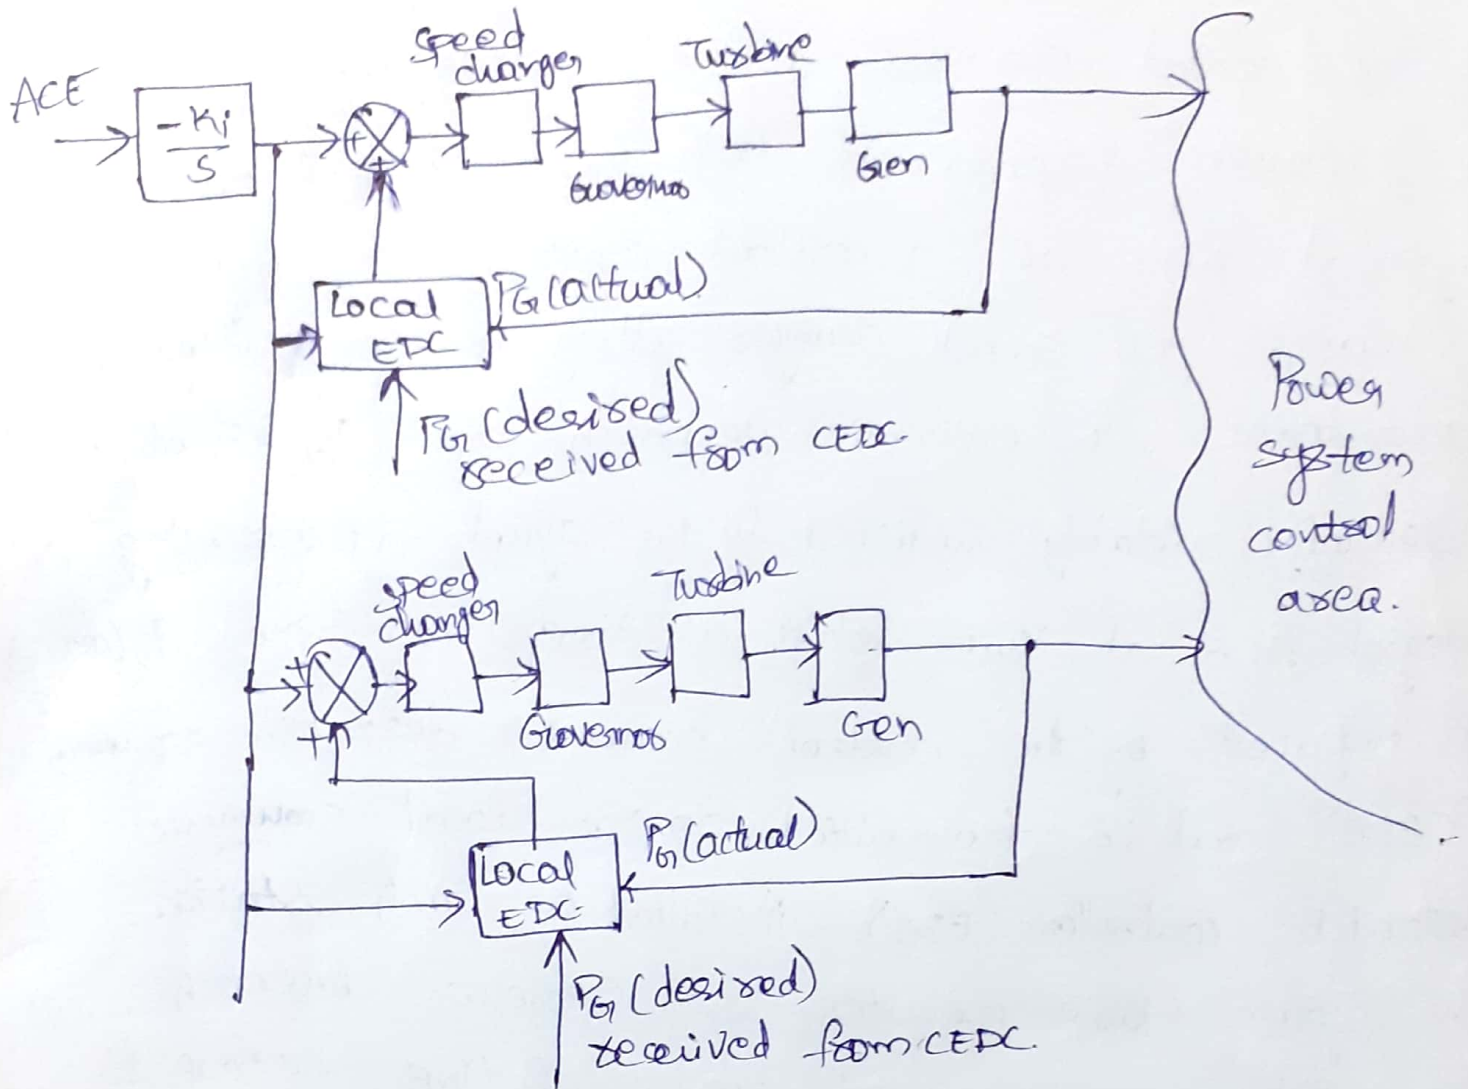 speed
changer
Turbine
ACE
-Ki
S
+
+
Governor
Gen
Local
EDC
PG (actual)
PG (desired)
received from CEDC
Power
system
control
area.
speed
changer
Turbine
+
+
Governor
Gen
Local
EDC
PG (actual)
PG (desired)
received from CEDC.